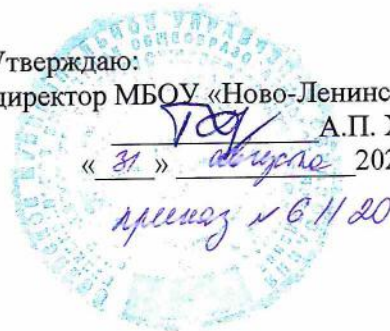 Утверждаю:
директор МБОУ «Ново-Ленинс
А.П. Х
« 31 » августа 202
приказ №